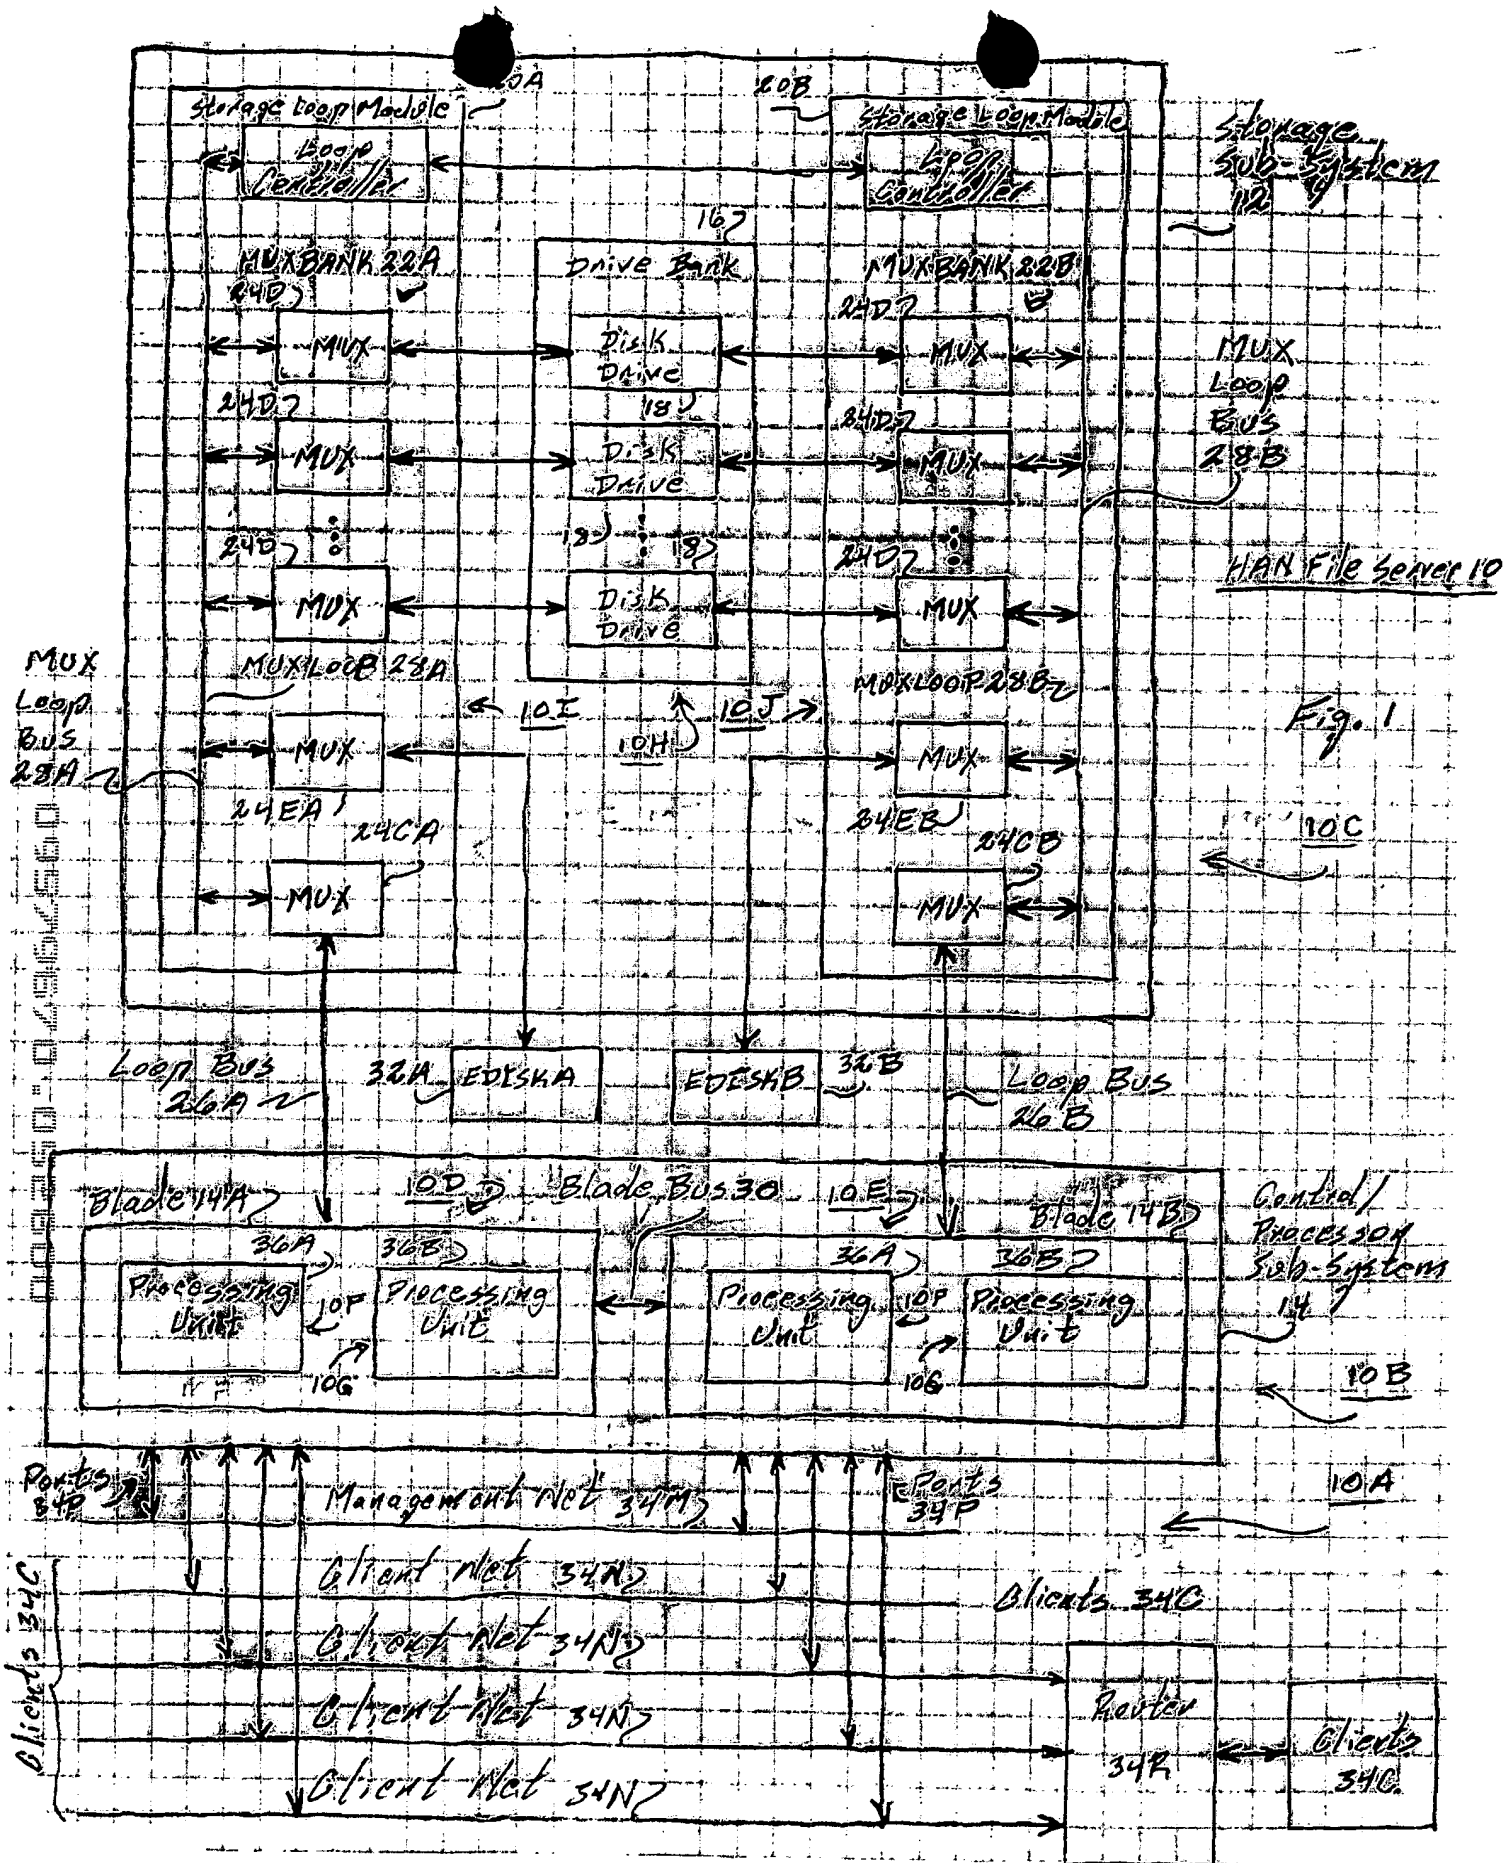 20B
Storage Loop Module
Loop
Controller
Storage Loop Module
Loop
Controller
Storage
Sub-System
12
16
MUXBANK 22A
24D
Drive Bank
MUXBANK 22B
24D
MUX
Disk
Drive
MUX
MUX
Loop
Bus
28B
24D
18
24D
MUX
Disk
Drive
MUX
24D
18
18
24D
HAN File Server 10
MUX
Disk
Drive
MUX
MUX
Loop
Bus
28A
MUXLOOP 28A
MUXLOOP 28B
10I
10H
10J
Fig. 1
MUX
MUX
24EA
24CA
24EB
24CB
10C
MUX
MUX
Loop Bus
26A
32A
EDISKA
EDISKB
32B
Loop Bus
26B
Blade 14A
10D
Blade Bus 30
10E
Blade 14B
Control/
Processor
Sub-System
14
36A
36B
36A
36B
Processing
Unit
10F
Processing
Unit
Processing
Unit
10F
Processing
Unit
10G
10G
10B
Ports
34P
Management Net 34M
Ports
34P
10A
Clients 34C
Client Net 34N
Clients 34C
Client Net 34N
Client Net 34N
Client Net 34N
Router
34R
Clients
34C